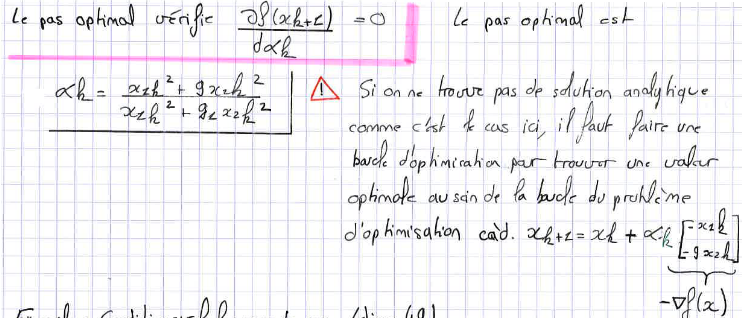 Le pas optimal vérifie ∂f(xk+1)/dαk = 0 Le pas optimal est
αk = (x1k² + 9x2k²)/(x1k² + 91x2k²)
⚠ Si on ne trouve pas de solution analytique
comme c'est le cas ici, il faut faire une
boucle d'optimisation par trouver une valeur
optimale au sein de la boucle du problème
d'optimisation càd. xk+1 = xk + αk [-x1k
-9x2k]
-∇f(x)